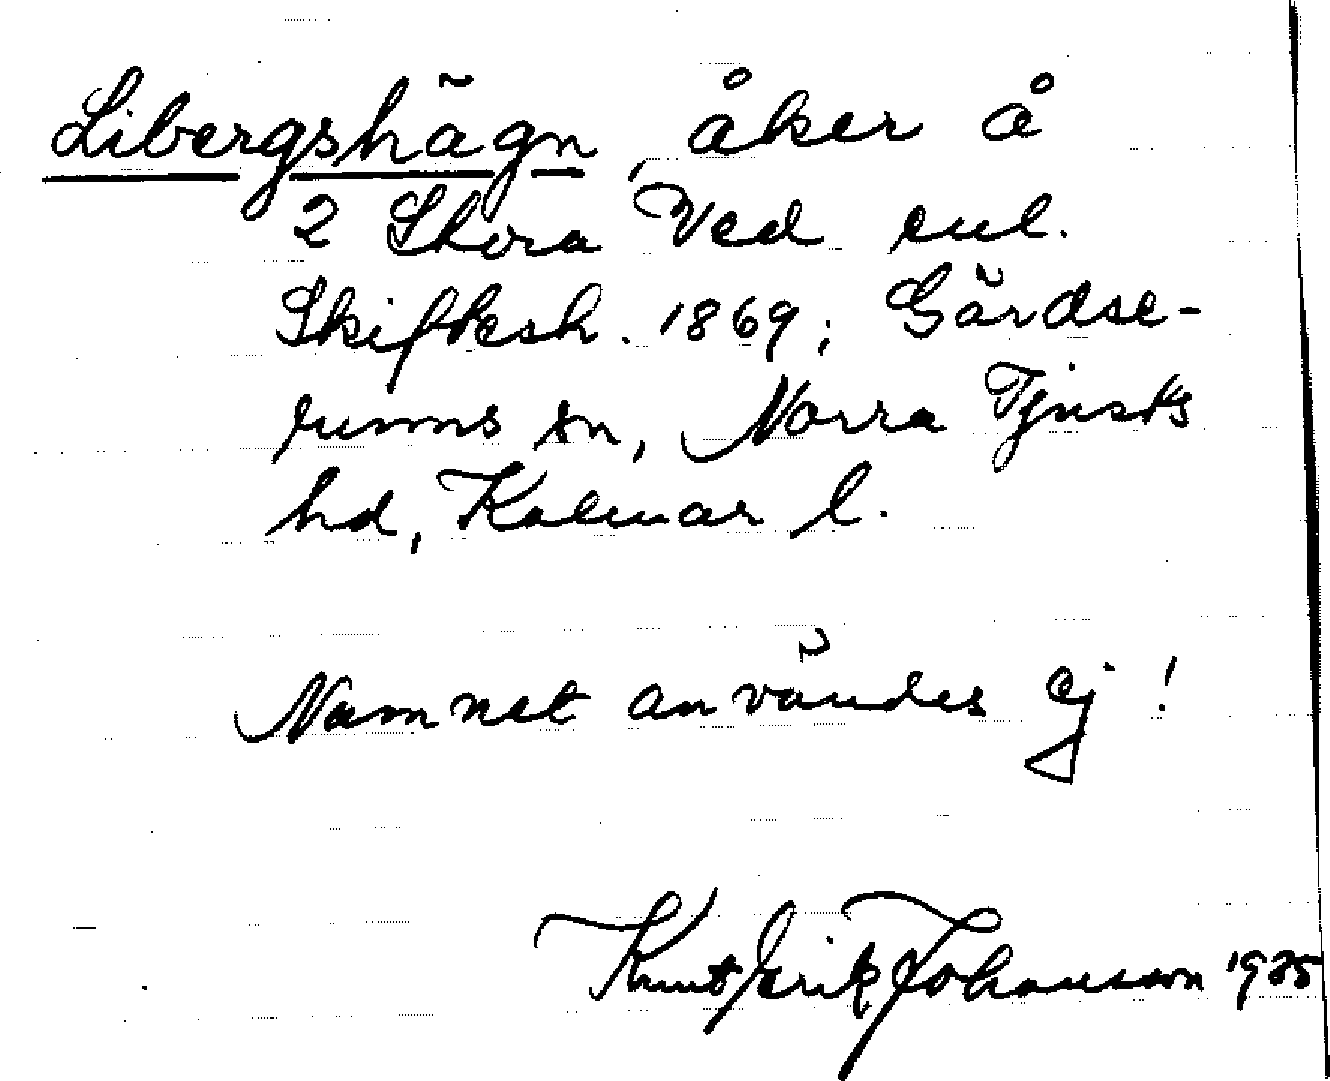 Libergshägn, åker å
2 Stora Ved enl.
Skifteskh. 1869; Gärdse-
rums sn, Norra Tjusts
hd, Kalmar l.
Namnet användes ej!
Knut Erik Johansson 1935